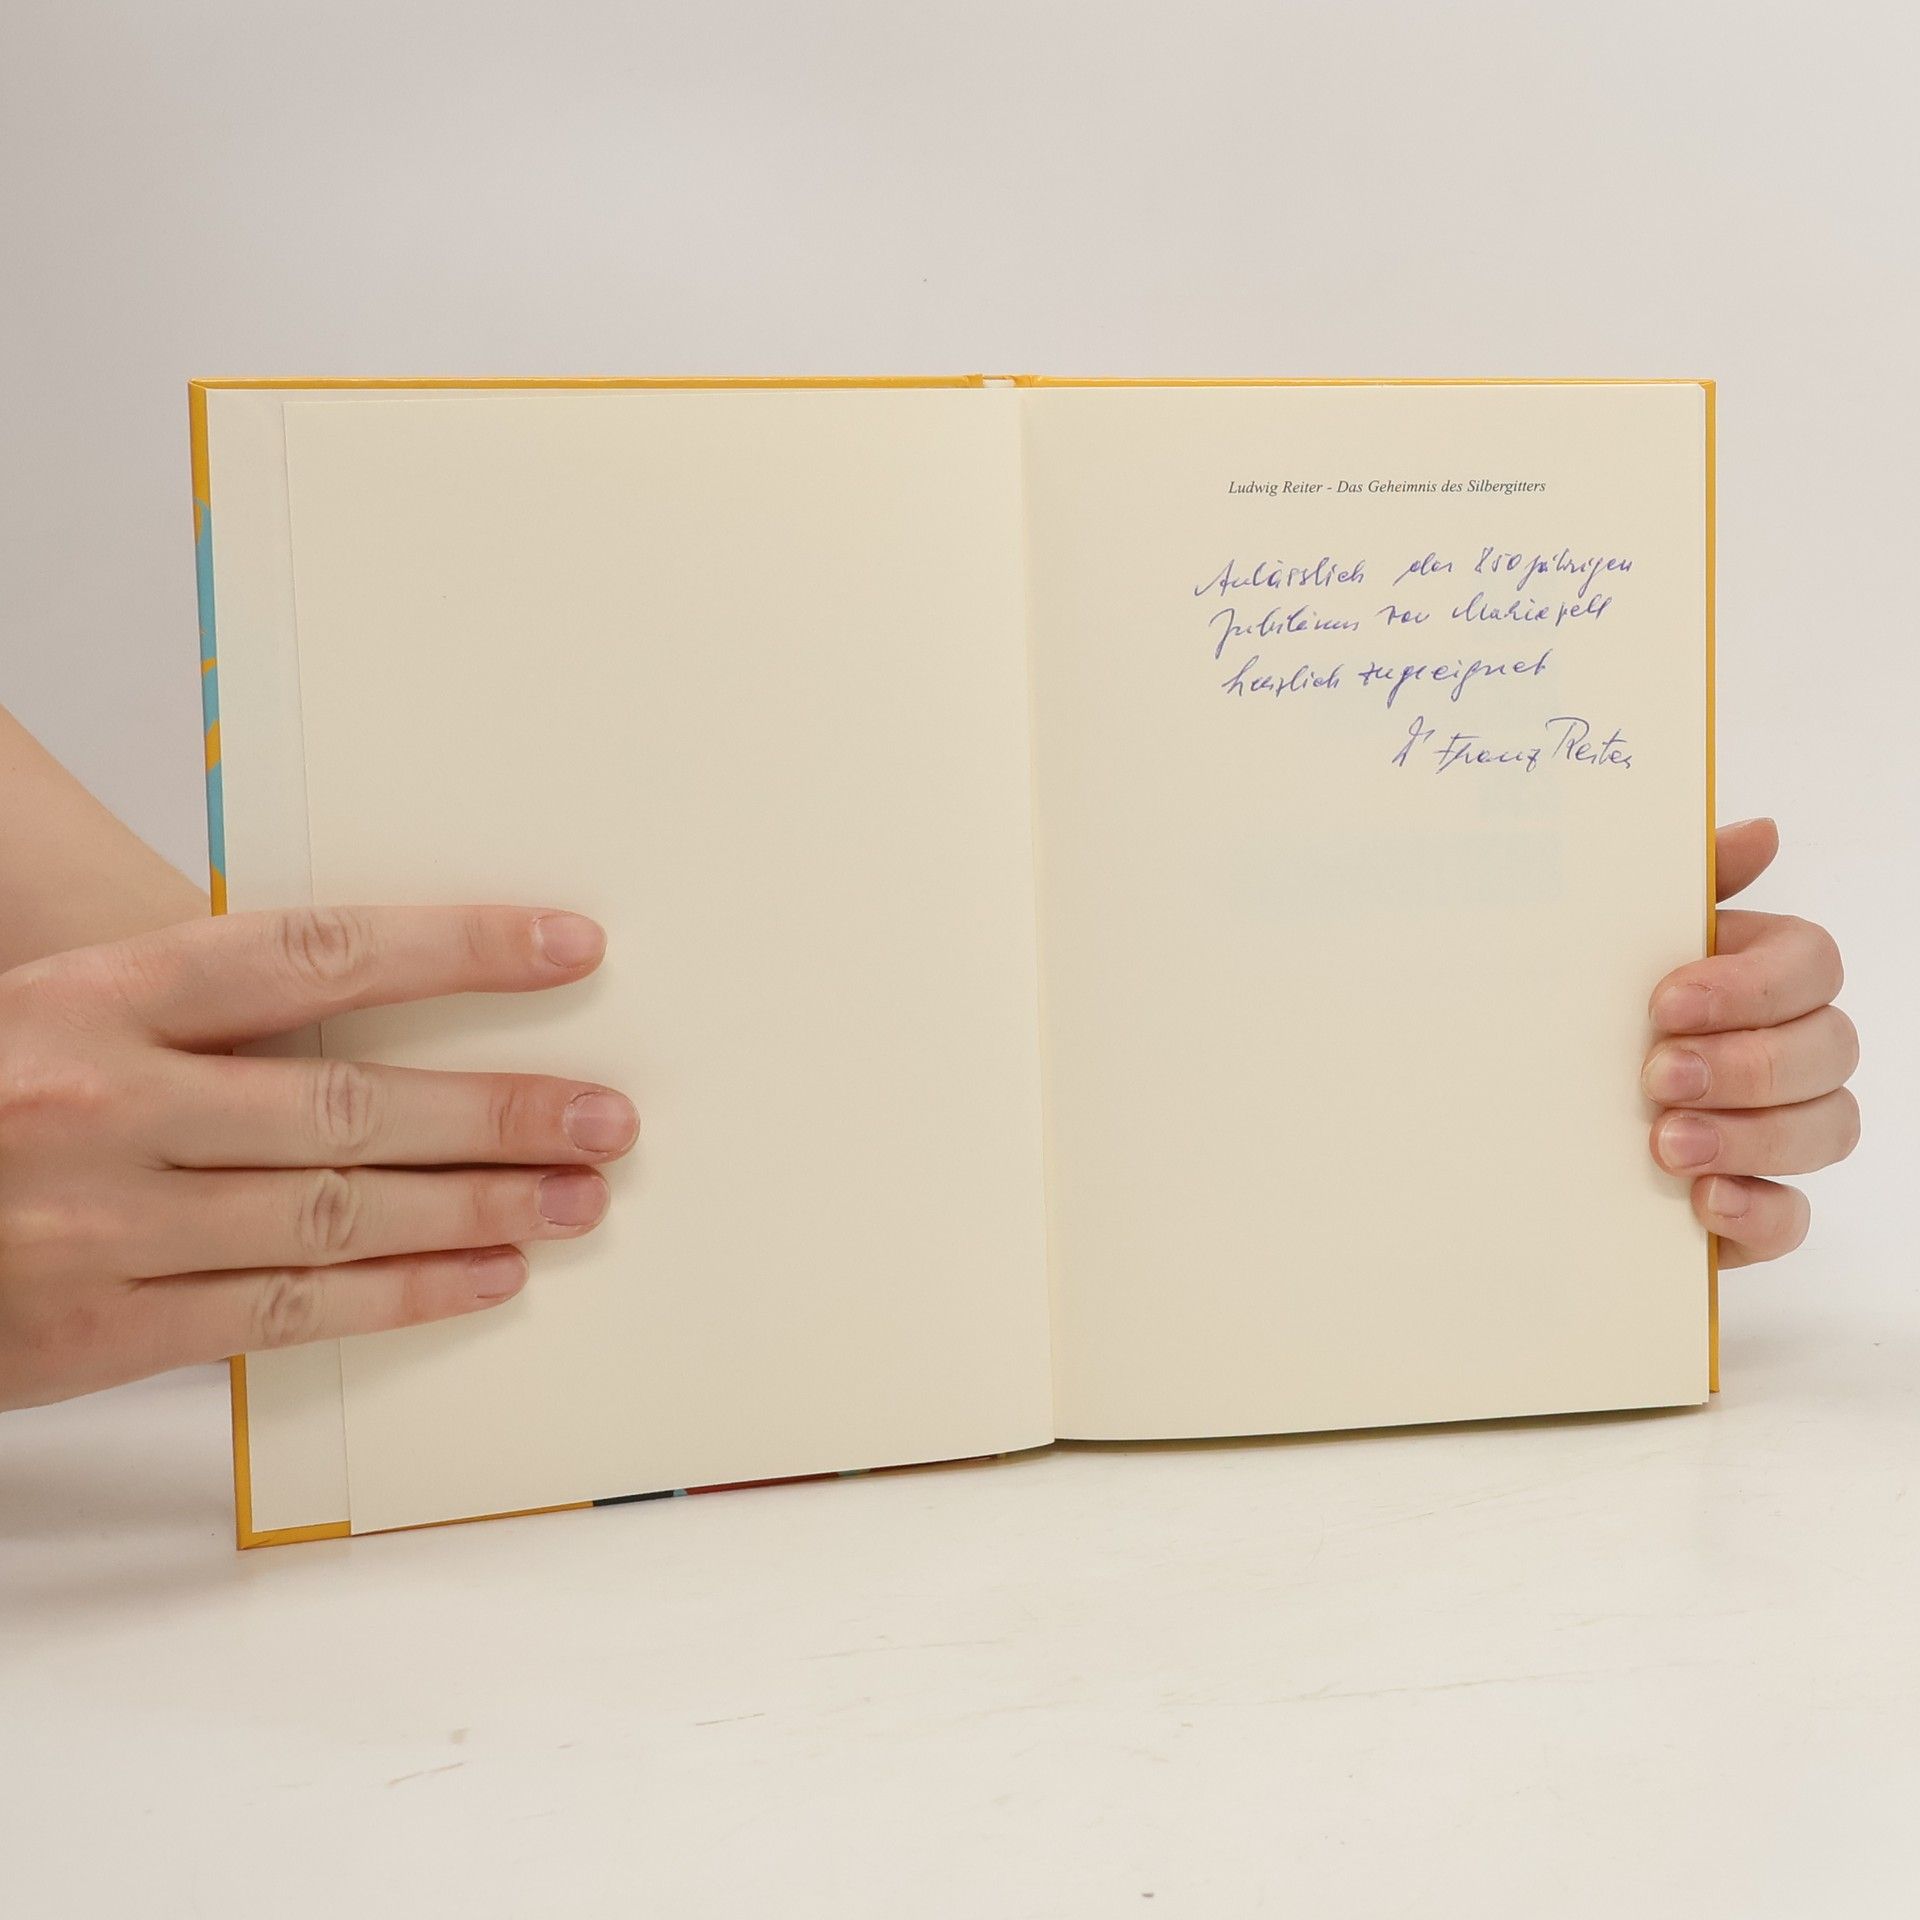 Ludwig Reiter - Das Geheimnis des Silbergitters
Anlässlich des 850jährigen
Jubiläums von Mariazell
herzlich zugeeignet
Dr Franz Reiter